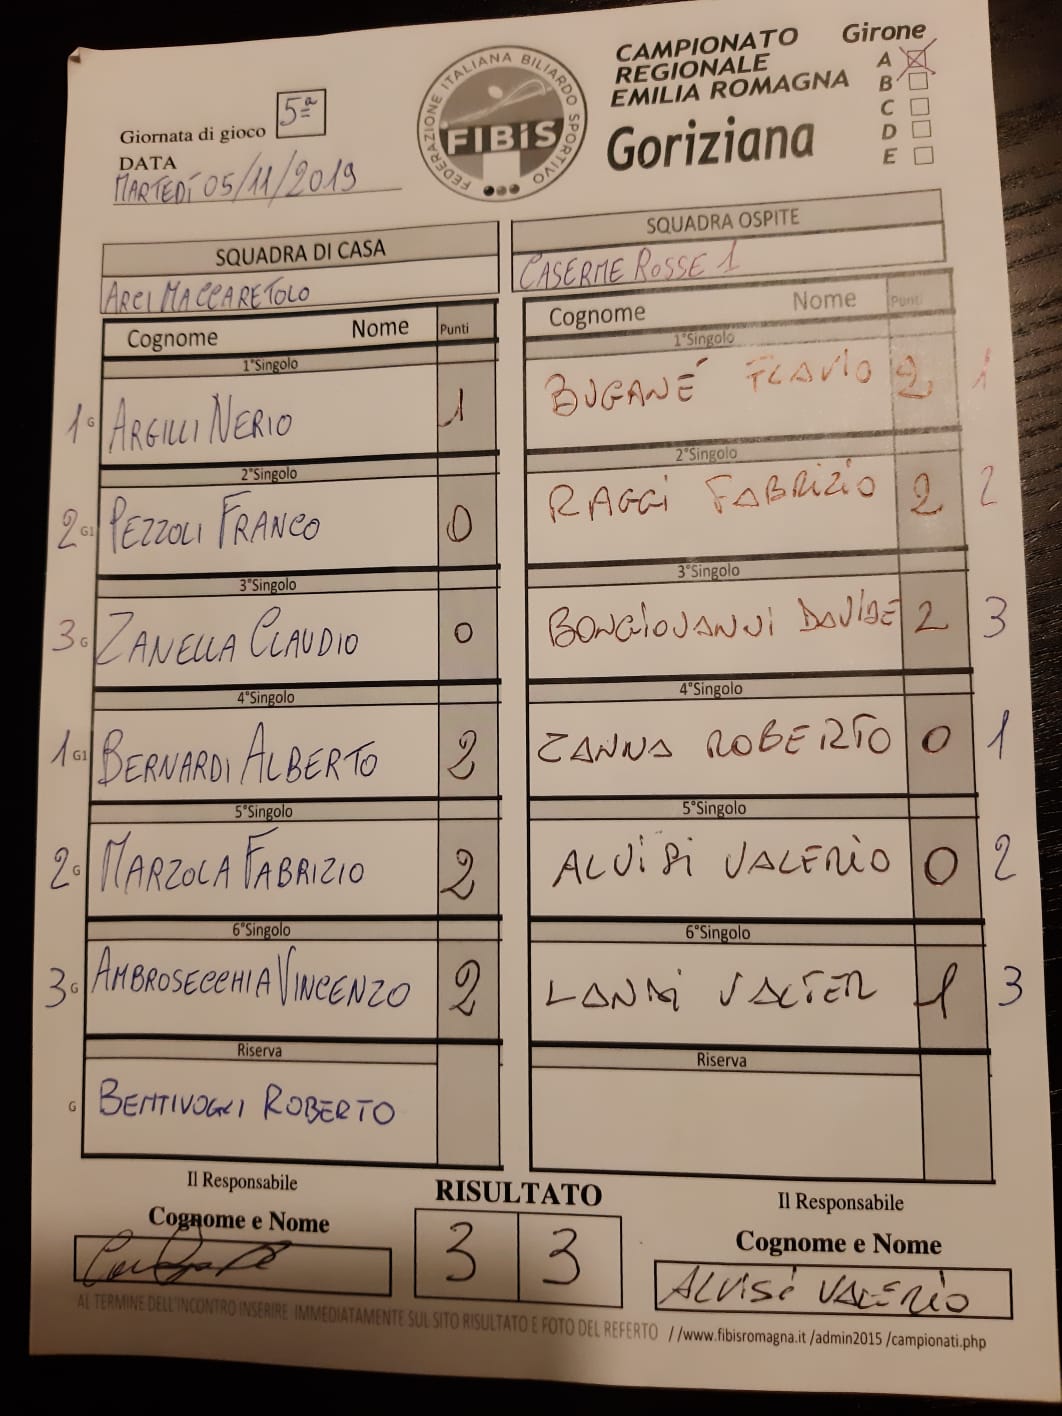 CAMPIONATO
REGIONALE
EMILIA ROMAGNA
Goriziana
Girone
A
B
C
D
E
FEDERAZIONE ITALIANA BILIARDO SPORTIVO
FIBiS
Giornata di gioco 5ª
DATA
MARTEDÍ 05/11/2019
SQUADRA DI CASA
ARCI MACCARETOLO
SQUADRA OSPITE
CASERME ROSSE 1
Cognome Nome Punti
Cognome Nome Punti
1°Singolo
1 G ARGILLI NERIO 1
1°Singolo
BUGANÉ FLAVIO 2 1
2°Singolo
2 G1 PEZZOLI FRANCO 0
2°Singolo
RAGGI FABRIZIO 2 2
3°Singolo
3 G ZANELLA CLAUDIO 0
3°Singolo
BONGIOVANNI DAVIDE 2 3
4°Singolo
1 G1 BERNARDI ALBERTO 2
4°Singolo
ZANNA ROBERTO 0 1
5°Singolo
2 G MARZOLA FABRIZIO 2
5°Singolo
ALVISI VALERIO 0 2
6°Singolo
3 G AMBROSECCHIA VINCENZO 2
6°Singolo
LANDI VALTER 1 3
Riserva
G BENTIVOGLI ROBERTO
Riserva
Il Responsabile
Cognome e Nome
RISULTATO
3 3
Il Responsabile
Cognome e Nome
ALVISI VALERIO
AL TERMINE DELL'INCONTRO INSERIRE IMMEDIATAMENTE SUL SITO RISULTATO E FOTO DEL REFERTO //www.fibisromagna.it /admin2015 /campionati.php